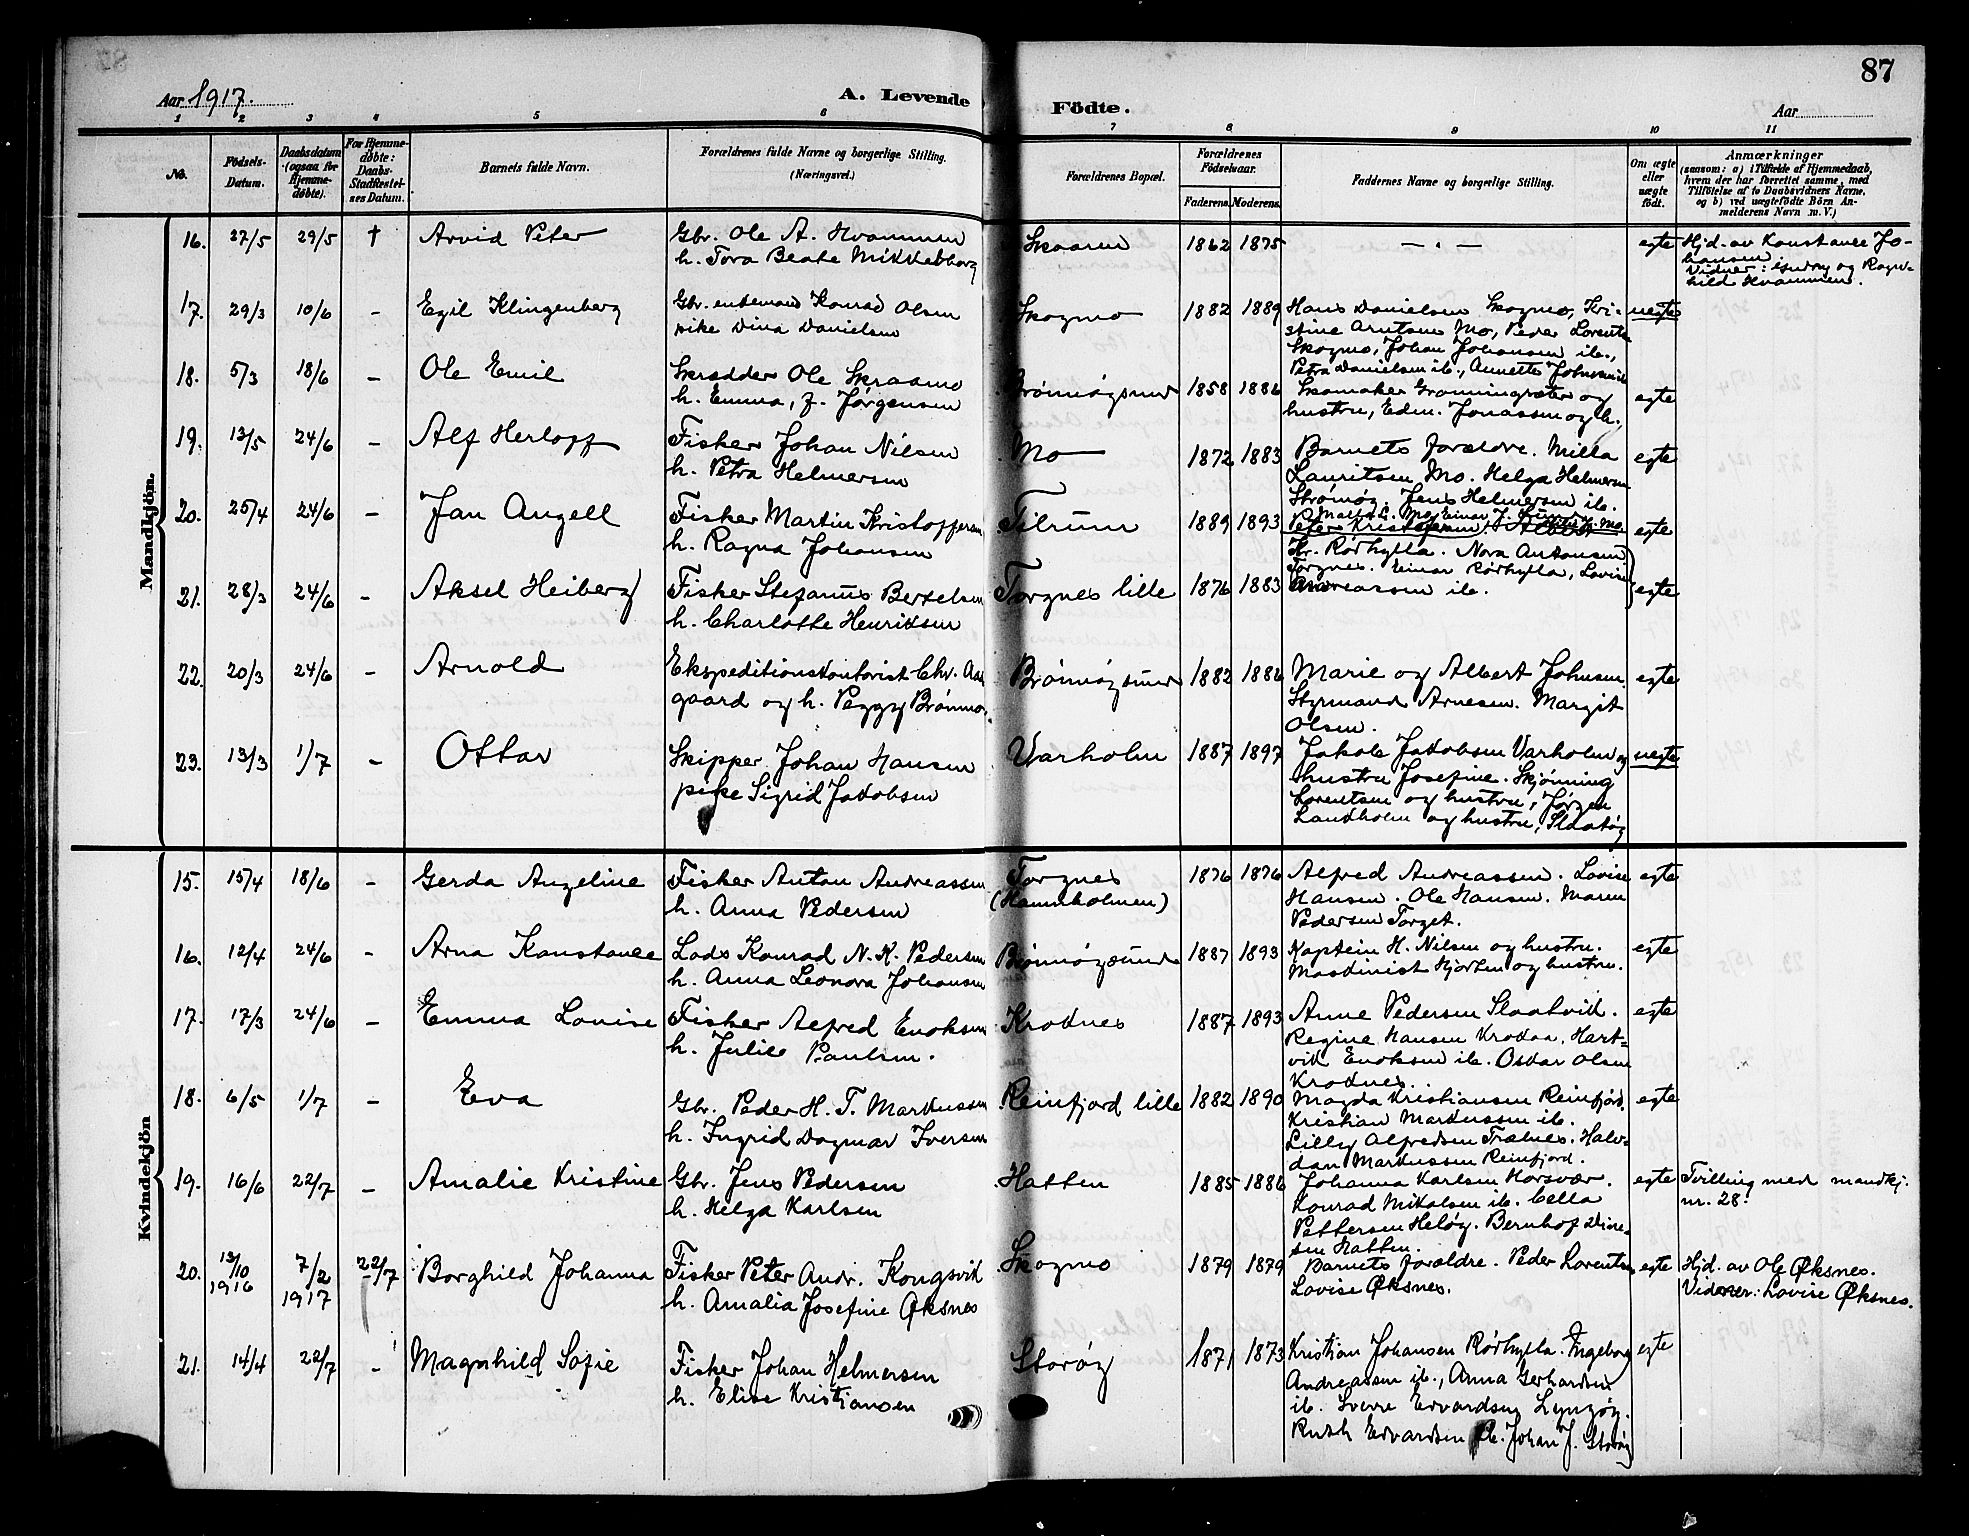 87
Aar 1917.
A. Levende Födte.
Aar
1 2 3 4 5 6 7 8 9 10 11
No.
Födsels-Datum.
Daabsdatum (ogsaa for Hjemmedøbte).
For Hjemmedøbte: Daabs-Stadfæstelses Datum.
Barnets fulde Navn.
Forældrenes fulde Navne og borgerlige Stilling.
(Næringsvei.)
Forældrenes Bopæl.
Forældrenes Födselsaar.
Faderens. Moderens.
Faddernes Navne og borgerlige Stilling.
Om ægte eller uægte födt.
Anmærkninger
(saasom: a) i Tilfælde af Hjemmedaab,
hvem der har forrettet samme, med
Tilföielse af to Daabsvidners Navne,
og b) ved uægtefödte Börn An-
melderens Navn m. V.)
Mandkjön.
16. 27/5 29/5 † Arvid Peter
Gbr. Ole A. Hvammen
h. Tora Beate Mikkelborg
Skaaren 1862 1875 — " — egte
Hjd. av Konstance Jo-
hansen.
Vidner: og Ragn-
hild Hvammen.
17. 29/3 10/6 - Egil Klingenberg
Gbr. enkemand Konrad Olsen
pike Dina Danielsen
Skogmo 1882 1889
Hans Danielsen Skogmo, Kri-
stine Arntsen Mo, Peder Lorents.
Skogmo, Johan Johansen ib.,
Petra Danielsen ib., Annette Johansen ib
uegte
18. 5/3 18/6 - Ole Emil
Skrædder Ole Skraamo
h. Emma, f. Jørgensen
Brønnøysund 1858 1886
Skomaker Grønningsæter og
hustru, Edm. Jonassen og h.
egte
19. 13/5 24/6 - Alf Herlopf
Fisker Johan Nilsen
h. Petra Helmersen
Mo 1872 1883
Barnets forældre. Milla
Lauritsen Mo. Helga Helmersen
Strømøy. Jens Helmersen ib.
egte
20. 25/4 24/6 - Jan Angell
Fisker Martin Kristoffersen
h. Ragna Johansen
Tilrum 1889 1893
Peter Kristofersen
egte
21. 28/3 24/6 - Aksel Heiberg
Fisker Stefanus Bertelsen
h. Charlotte Henriksen
Torgnes lille 1876 1883
Kr. Rørhylla. Nora Antonsen
Torgnes. Einar Rørhylla, Lovise
Andreassen ib.
egte
22. 20/3 24/6 - Arnold
Ekspeditionskontorist Chr. Aa-
gaard og h. Peggy Brønmo.
Brønnøysund 1882 1886
Marie og Albert Johnsen.
Styrmand Arnesen. Margit
Olsen.
egte
23. 13/3 1/7 - Ottar
Skipper Johan Hansen
pike Sigrid Jakobsen
Varholm 1887 1897
Jakob Jakobsen Varholm og
hustru Josefine. Skjønning
Lorentsen og hustru, Jørgen
Landholm og hustru, Slaatøy
uegte
Kvindekjön
15. 15/4 18/6 - Gerda Angeline
Fisker Anton Andreassen
h. Anna Pedersen
Torgnes
(Hamnholmen) 1876 1876
Alfred Andreassen. Lovise
Hansen. Ole Hansen. Maren
Pedersen Torget.
egte
16. 12/4 24/6 - Arna Konstance
Lods Konrad N. K. Pedersen
h. Anna Leonora Johansen
Brønnøysund 1887 1893
Kaptein H. Nilsen og hustru.
Maskinist Hjorten og hustru.
egte
17. 17/3 24/6 - Emma Lovise
Fisker Alfred Enoksen
h. Julie Paulsen.
Kroknes 1887 1893
Anne Pedersen Slaatvik.
Regine Hansen Krokaa. Hart-
vik Enoksen ib. Oskar Olsen
Kroknes.
egte
18. 6/5 1/7 - Eva
Gbr. Peder H. T. Markussen
h. Ingrid Dagmar Iversen
Reinfjord lille 1882 1890
Magda Kristiansen Reinfjord.
Kristian Markussen ib.
Lilly Alfredsen Trælnes. Halv-
dan Markussen Reinfjord.
egte
19. 16/6 22/7 - Amalie Kristine
Gbr. Jens Pedersen
h. Helga Karlsen
Hatten 1885 1886
Johanna Karlsen Horsvær.
Konrad Mikalsen ib. Cella
Pettersen Heløy. Bernhof
sen Hatten.
egte
Tvilling med mandkj.
nr. 28.
20. 13/10 1916 7/2 1917 22/7 Borghild Johanna
Fisker Peter Andr. Kongsvik
h. Amalia Josefine Øksnes
Skogmo 1879 1879
Barnets forældre. Peder Lorentsen
Lovise Øksnes.
egte
Hjd. av Ole Øksnes.
Vidner: Lovise Øksnes.
21. 14/4 22/7 - Magnhild Sofie
Fisker Johan Helmersen
h. Elise Kristiansen
Storøy 1871 1873
Kristian Johansen Rørhylla. Ingeborg
Andreassen ib., Anna Gerhardsen
ib. Sverre Edvardsen Lyngøy.
Ruth Edvardsen ib. Johan J. Storøy
egte